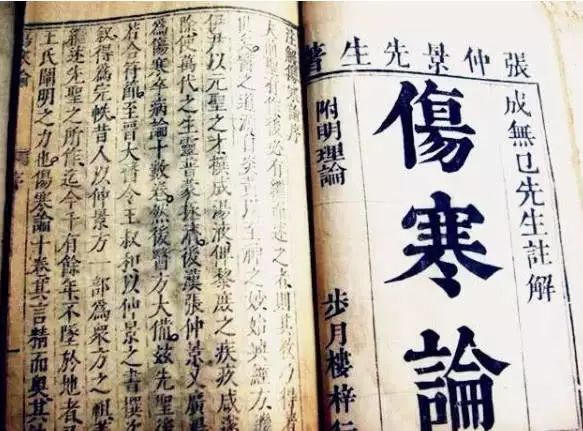 張仲景先生著
成無已先生註解
傷寒論
附明理論
步月樓梓行
註解傷寒論序
夫前聖有作後必有繼而述之者則其教乃得
世矣醫之道源自炎黃以至神之妙始興經
伊尹以元聖之才撰成湯液俾黎庶之疾疚咸
除使萬代之生靈普蒙拯濟後漢張仲景又廣
為傷寒卒病論十數卷然後醫方大備茲先聖後
若合符節至晉太醫令王叔和以仲景之書撰次
敘得為完帙昔人以仲景方一部為眾方之祖蓋
能述先聖之所作迄今千有餘年不墜於地者又
王氏闡明之力也傷寒論十卷其言精而奧其法
傷寒論 序